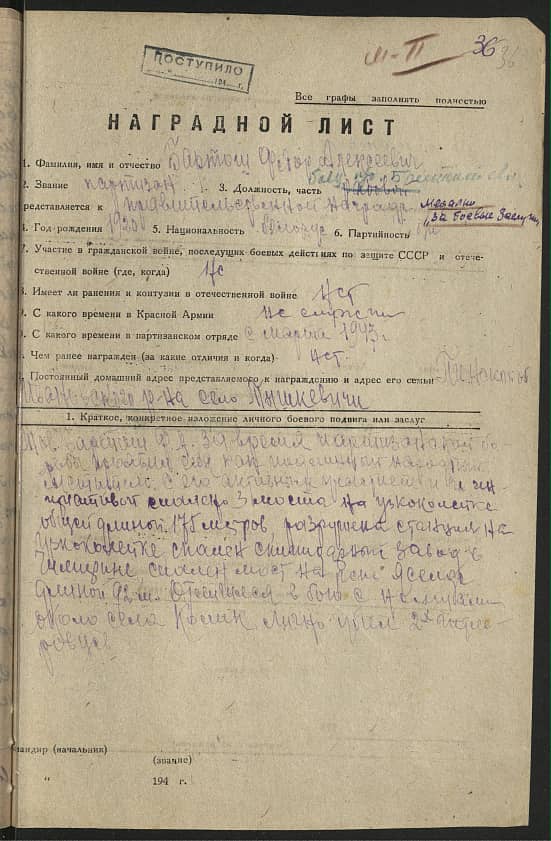 36
ПОСТУПИЛО
194 г.
Все графы заполнять полностью
НАГРАДНОЙ ЛИСТ
1. Фамилия, имя и отчество Бактыш Федор Алексеевич
2. Звание партизан 3. Должность, часть
представляется к правительственной награде медалью "За боевые заслуги"
4. Год рождения 5. Национальность белорус 6. Партийность б/п
7. Участие в гражданской войне, последующих боевых действиях по защите СССР и отече-
ственной войне (где, когда) Нет
8. Имеет ли ранения и контузии в отечественной войне Нет
9. С какого времени в Красной Армии не служил
0. С какого времени в партизанском отряде с марта 1943 г.
Чем ранее награжден (за какие отличия и когда) Нет
Постоянный домашний адрес представляемого к награждению и адрес его семьи Пинской об
Ивановского р-на село Тышкевичи
1. Краткое, конкретное изложение личного боевого подвига или заслуг
за время партизанской бо
рьбы показал себя как народный
мститель. С его активным участием и ин
ициативой спалено 3 моста на узкоколейке
общей длиной 175 метров разрушена станция на
узкоколейке спален скипидарный завод в
спален мост на реке Ясельда
длиной 92 м. Отличился в бою с немцами
около села лично убил 2х гитле
ровцев
Командир (начальник)
(звание)
" 194 г.